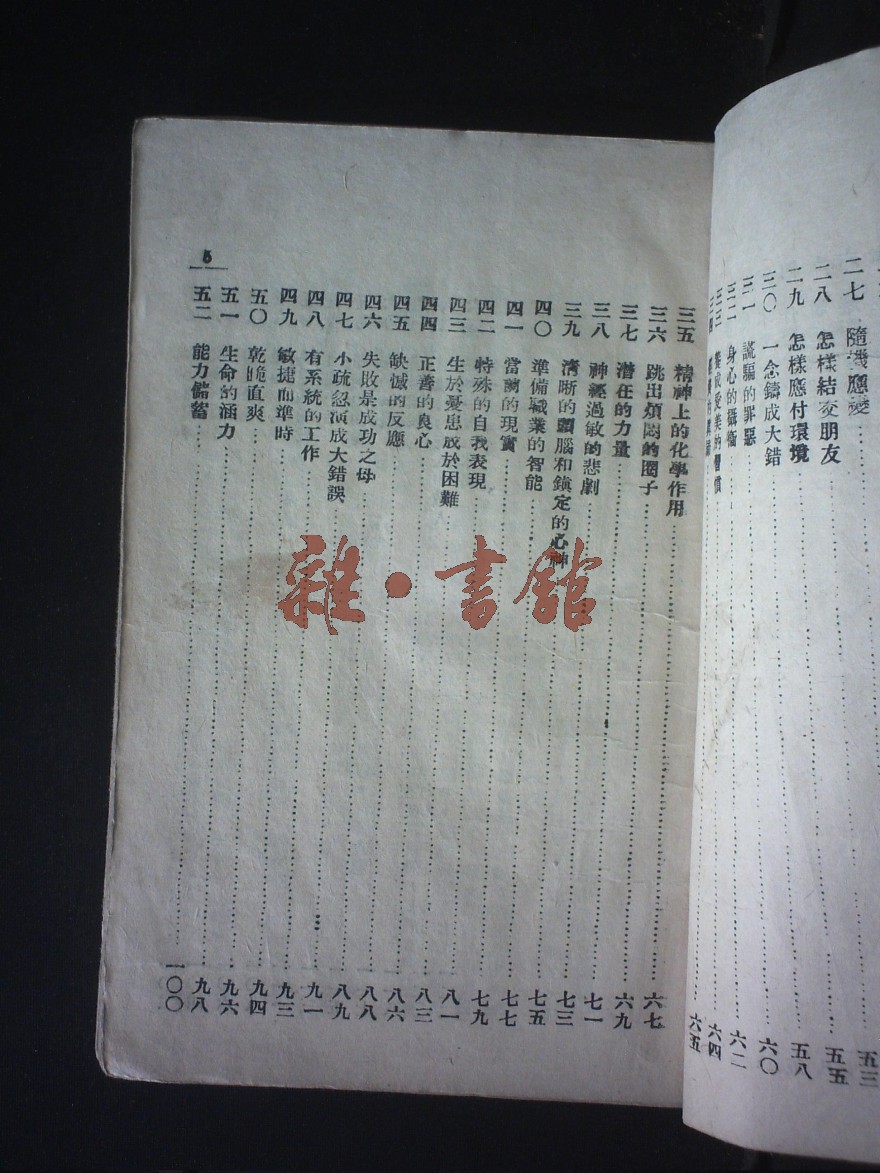 二七 隨機應變……五三
二八 怎樣結交朋友……五五
二九 怎樣應付環境……五八
三〇 一念鑄成大錯……六〇
三一 謊騙的罪惡……六二
三二 身心的攝衛……六四
三三 養成愛美的習慣……六五
三四
三五 精神上的化學作用……六七
三六 跳出煩悶的圈子……六九
三七 潛在的力量……七一
三八 神經過敏的悲劇……七三
三九 清晰的頭腦和鎭定的心神……七五
四〇 準備職業的智能……七七
四一 當前的現實……七九
四二 特殊的自我表現……八一
四三 生於憂患成於困難……八三
四四 正善的良心……八六
四五 缺憾的反應……八八
四六 失敗是成功之母……八九
四七 小疏忽演成大錯誤……九一
四八 有系統的工作……九三
四九 敏捷而準時……九四
五〇 乾脆直爽……九六
五一 生命的涵力……九八
五二 能力儲蓄……一〇〇
5
雜·書館